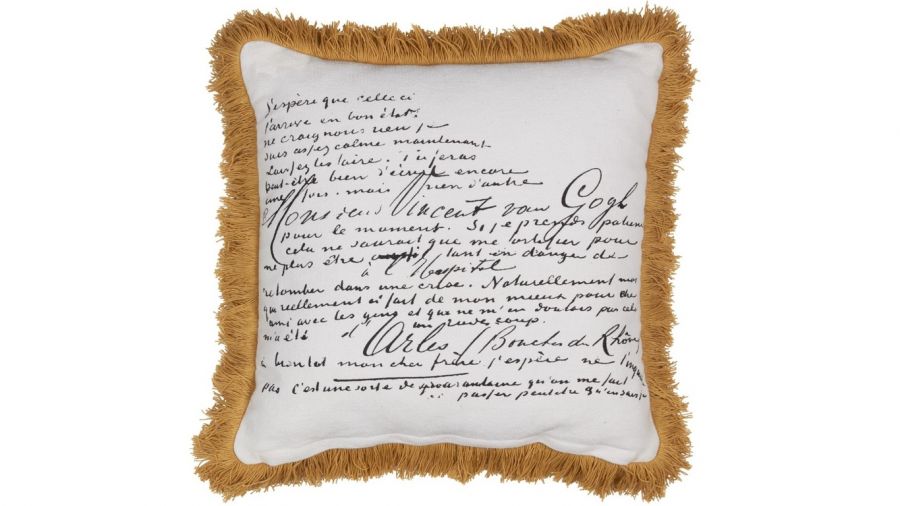 J'espère que celle ci
t'arrive en bon état.
ne craignons rien je
suis assez calme maintenant
Laissez les faire. Tu feras
peut-être bien d'écrire encore
une fois. mais rien d'autre
Monsieur Vincent van Gogh
pour le moment. Si je prends patience
cela ne saurait que me fortifier pour
ne plus être tant en danger de
à l'Hospital
retomber dans une crise. Naturellement moi
qui reellement ai fait de mon mieux pour être
ami avec les gens et que ne m'en doutais pas cela
m'a été un rude coup.
d'Arles / Bouches du Rhône
à bientot mon cher frère j'espère ne
pas c'est une sorte de quarantaine qu'on me fait
passer peutetre